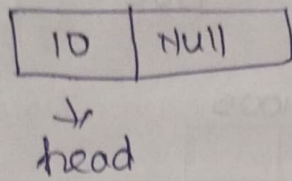 10 Null
head